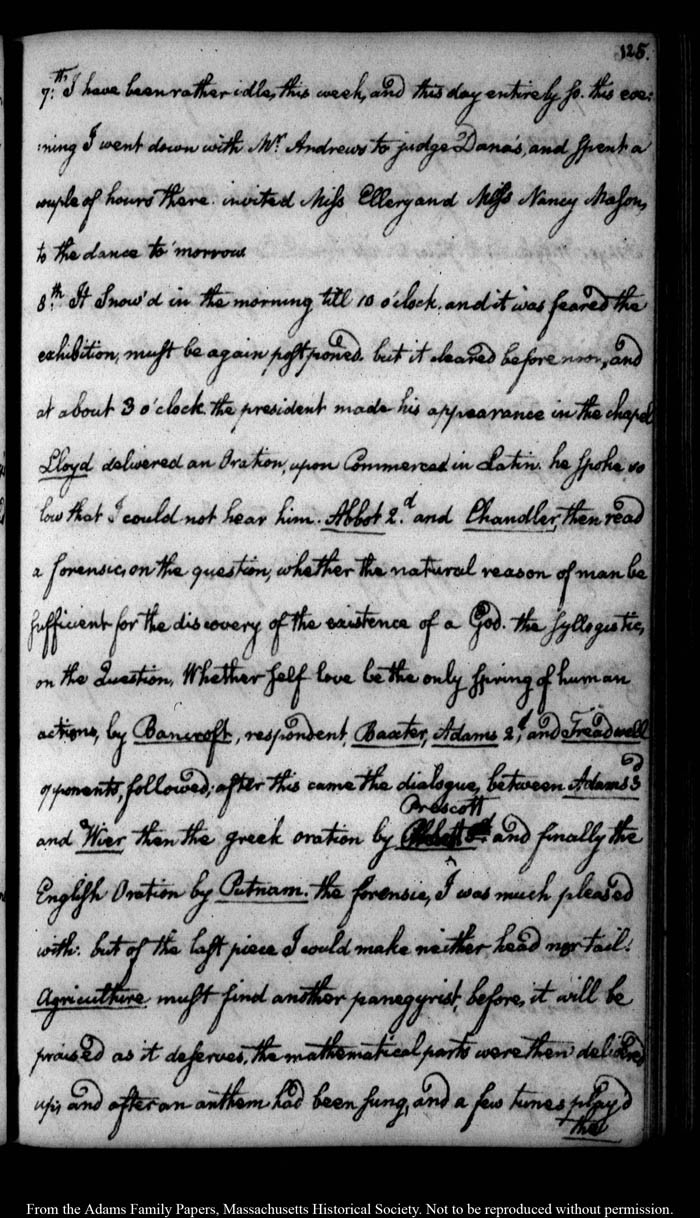 125.
7th. I have been rather idle, this week, and this day entirely so. this eve:
:ning I went down with Mr. Andrews to judge Dana's, and spent a
couple of hours there. invited Miss Ellery and Miss Nancy Mason,
to the dance to'morrow
8th. It Snow'd in the morning till 10 o'clock. and it was feared the
exhibition, must be again postponed. but it cleared before noon, and
at about 3 o'clock. the president made his appearance in the chapel
Lloyd delivered an Oration, upon Commerce in Latin. he spoke so
low that I could not hear him. Abbot 2.d and Chandler, then read
a forensic, on the question, whether the natural reason of man be
sufficient for the discovery of the existence of a God. the syllogistic,
on the Question, Whether self love be the only spring of human
actions, by Bancroft, respondent, Baxter, Adams 2d, and Treadwell
opponents, followed; after this came the dialogue, between Adams 3d
Prescott
and Wier then the greek oration by and finally the
English Oration by Putnam. the forensic, I was much pleased
with: but of the last piece I could make neither head nor tail.
Agriculture must find another panegyrist, before, it will be
praised as it deserves. the mathematical parts were then delivered
up, and after an anthem had been sung, and a few tunes play'd
the
From the Adams Family Papers, Massachusetts Historical Society. Not to be reproduced without permission.